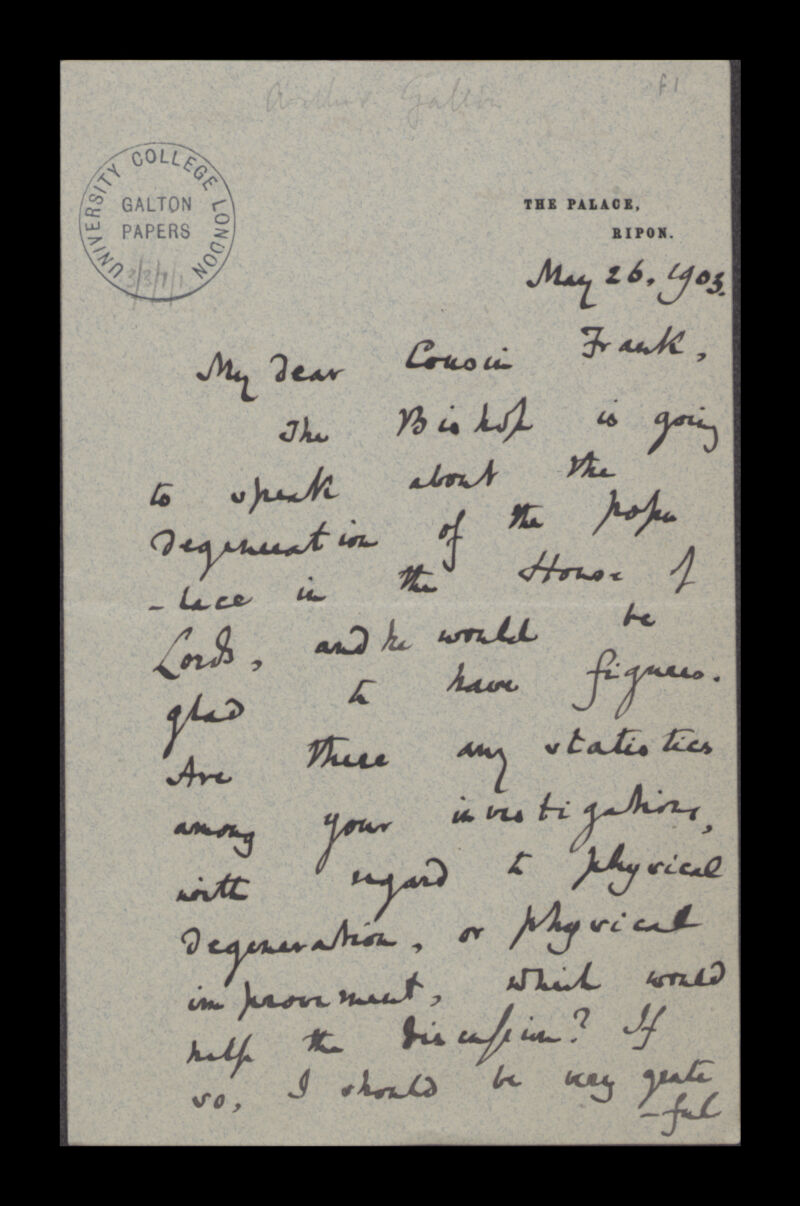 Arthur Galton
f1
UNIVERSITY COLLEGE LONDON
GALTON
PAPERS
3/3/7/1
THE PALACE,
RIPON.
May 26. 1903.
My dear Cousin Frank,
The Bishop is going
to speak about the
degeneration of the popu
-lace in the House of
Lords, and he would be
glad to have figures.
Are there any statistics
among your investigations,
with regard to physical
degeneration, or physical
improvement, which would
help the discussion? If
so, I should be very grate
-ful